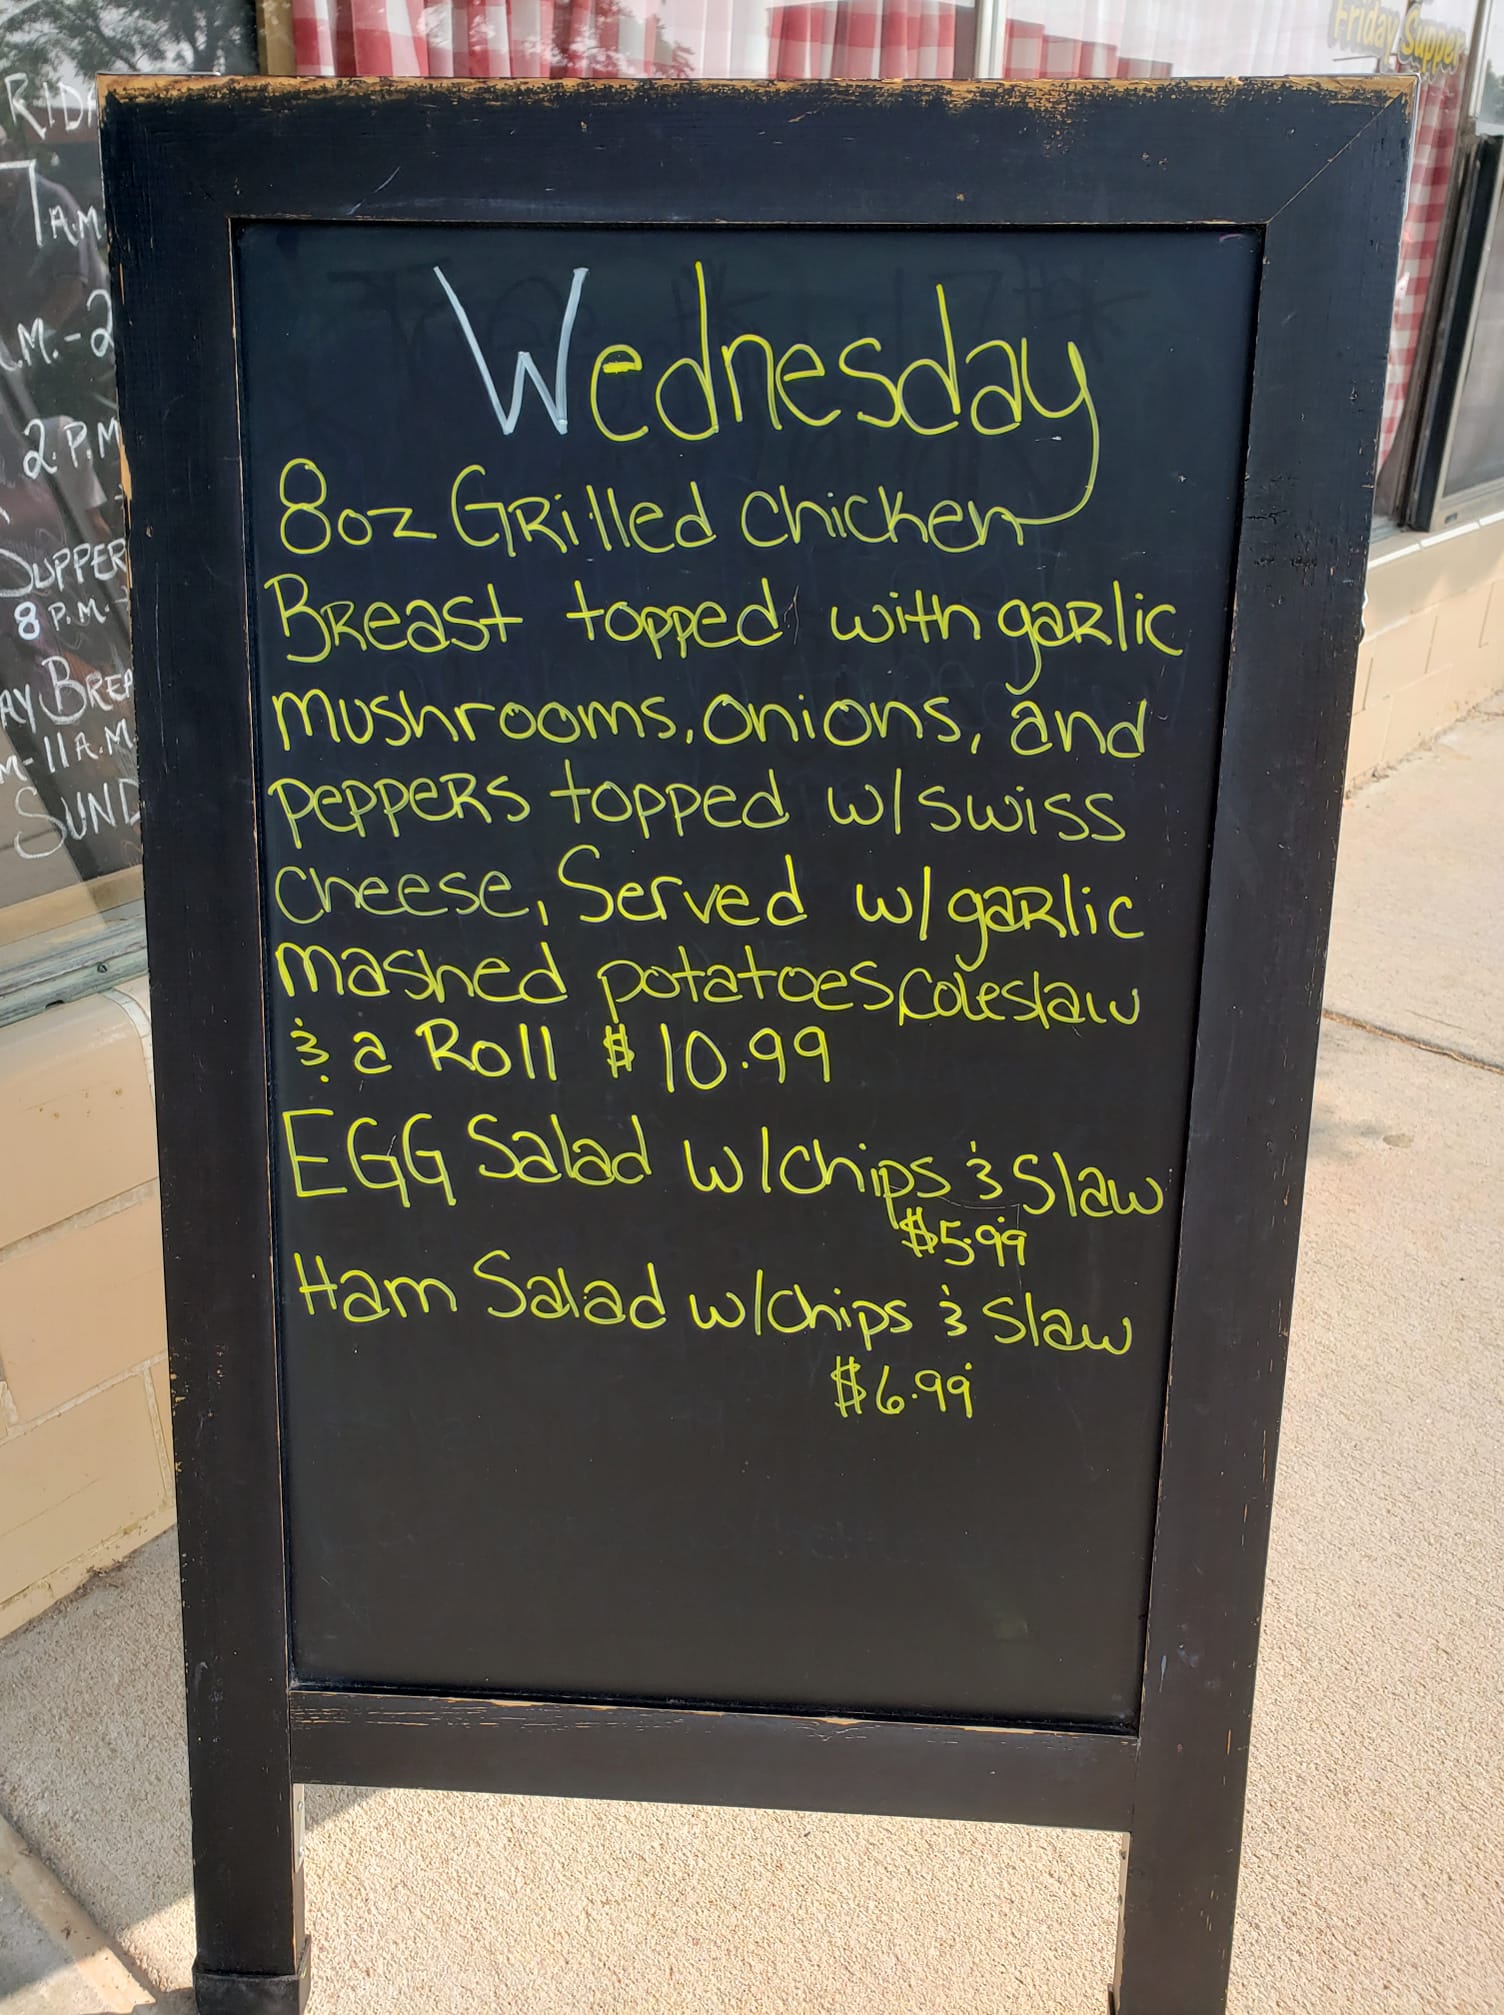 Wednesday
8oz Grilled Chicken
Breast topped with garlic
mushrooms, onions, and
peppers topped w/ swiss
cheese, Served w/ garlic
mashed potatoes, coleslaw
& a Roll $10.99
EGG Salad w/chips & Slaw
$5.99
Ham Salad w/chips & Slaw
$6.99
Friday Supper
RIDA
7 A.M
.M.-2
2 P.M
SUPPER
8 P.M.-
AY BREA
M-11 A.M.
SUND